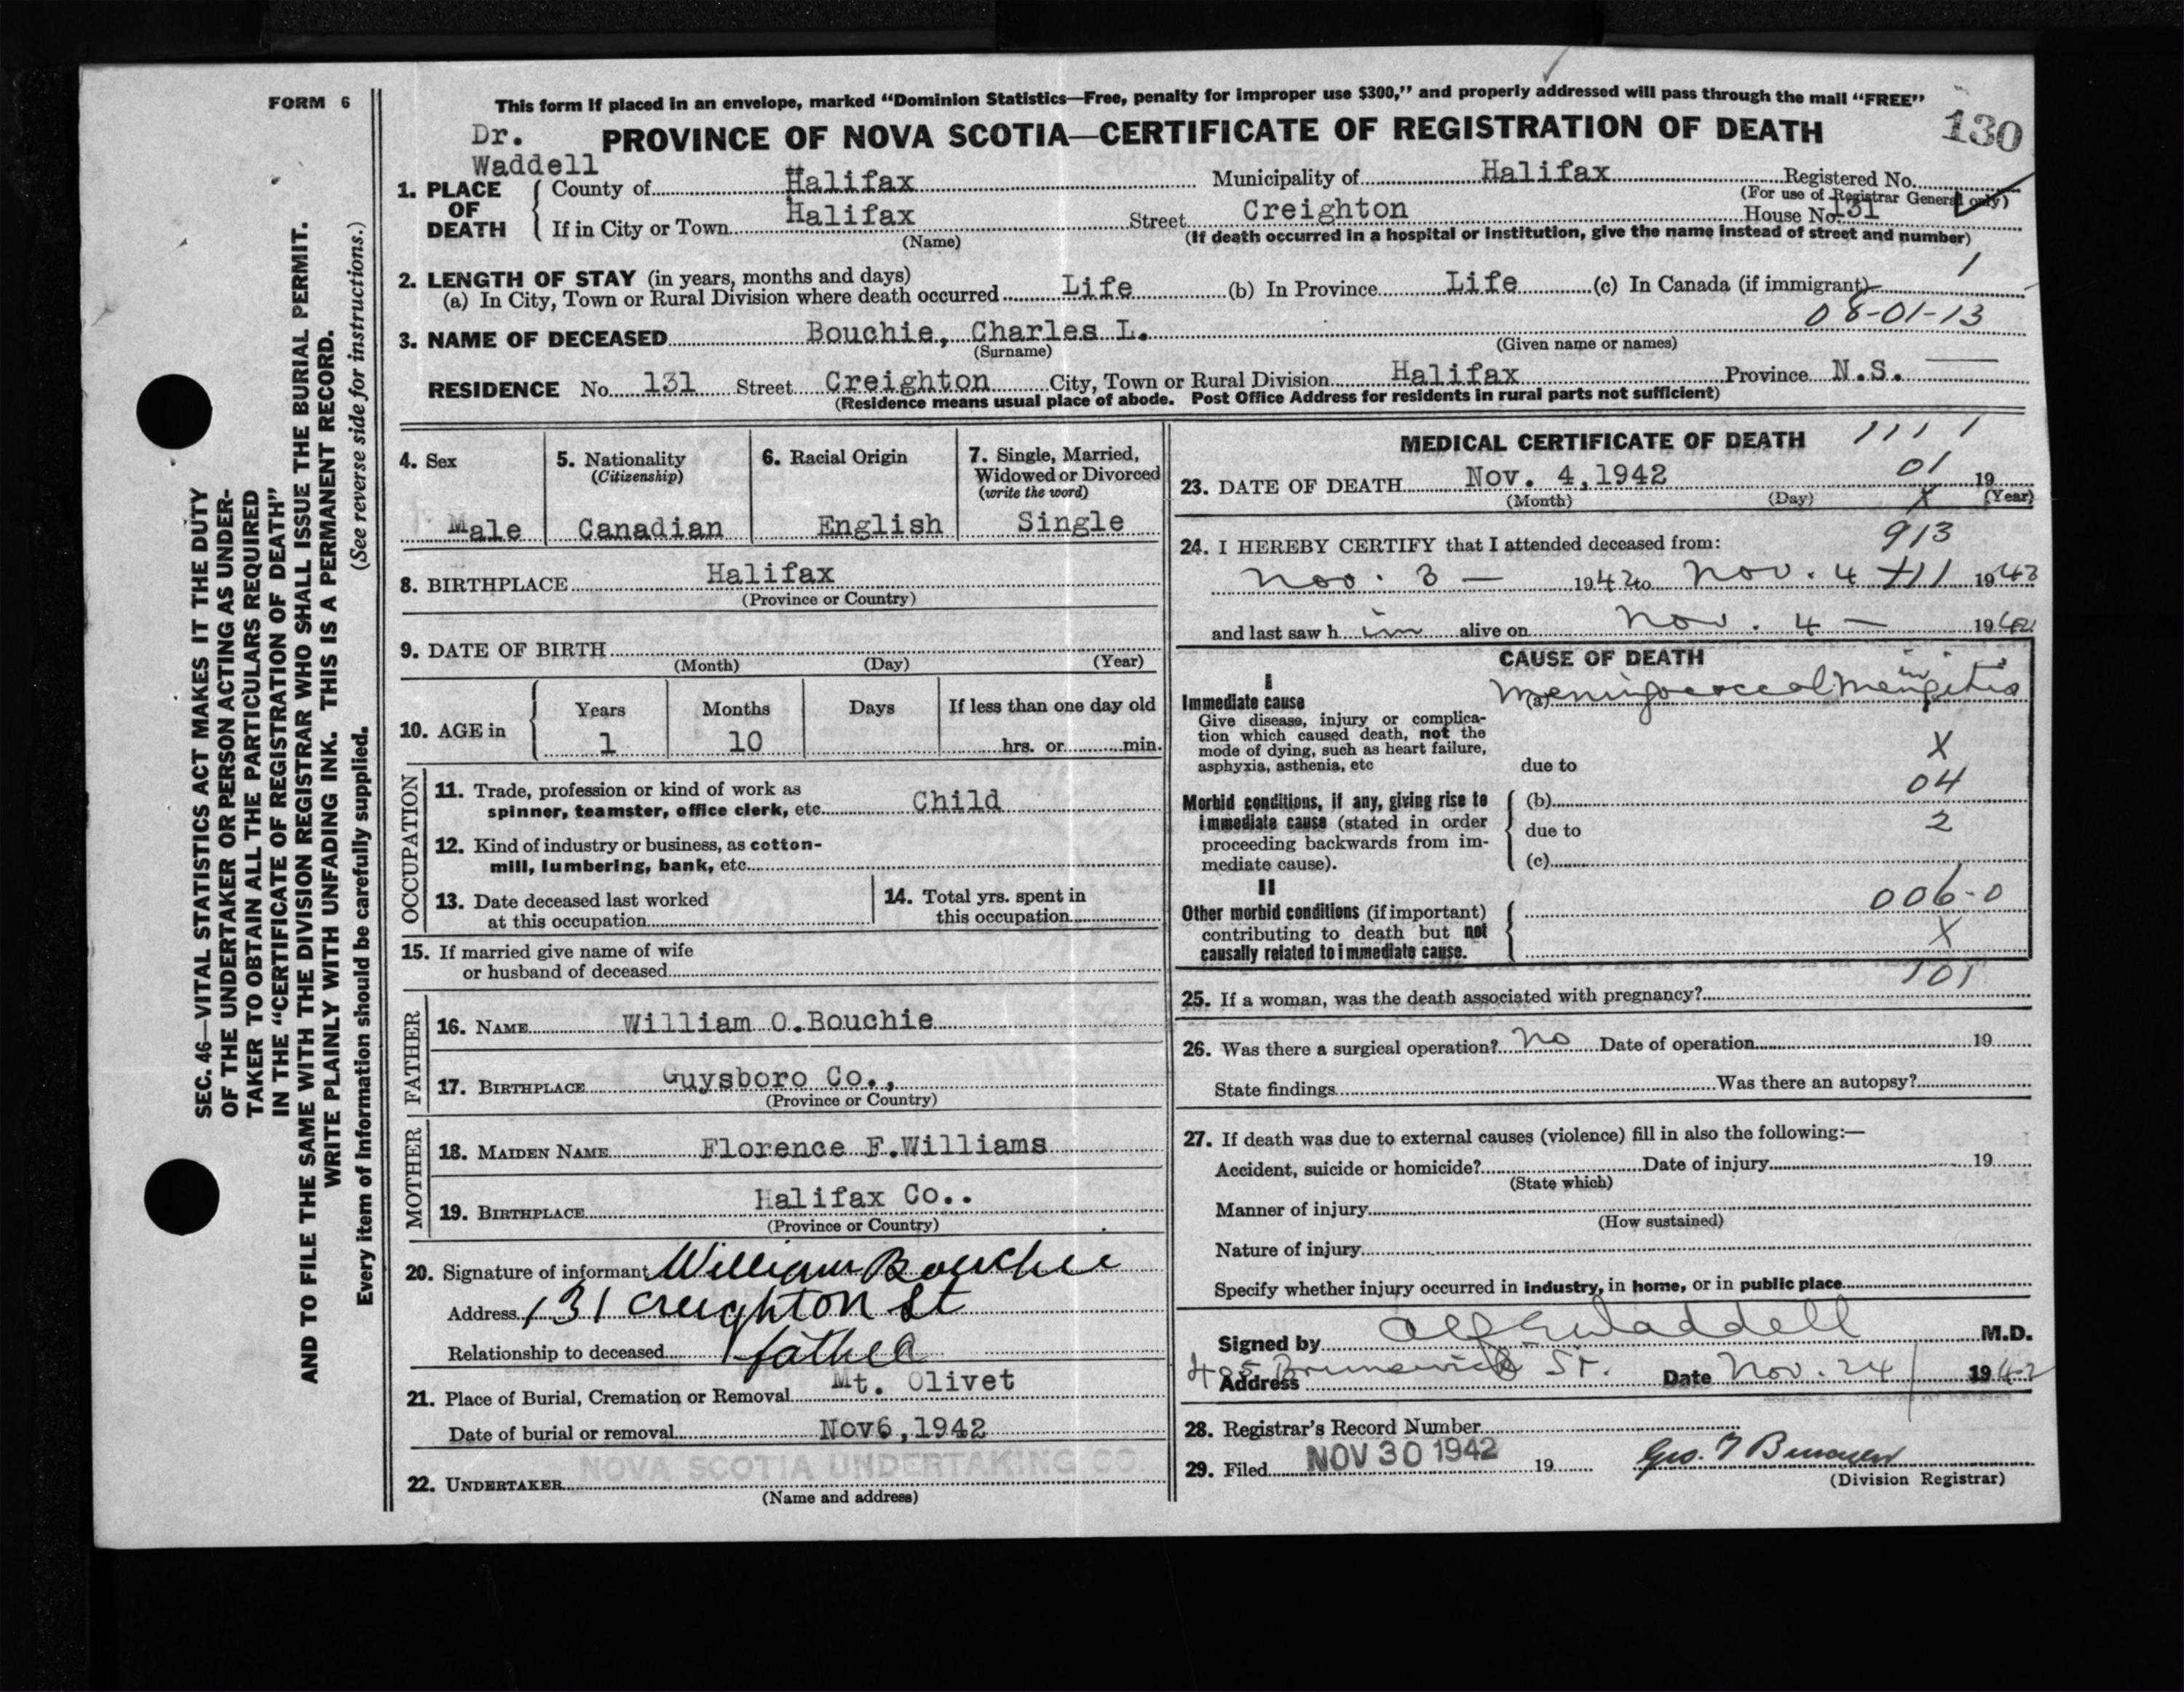 FORM 6
This form if placed in an envelope, marked “Dominion Statistics—Free, penalty for improper use $300,” and properly addressed will pass through the mail “FREE”
Dr. Waddell
PROVINCE OF NOVA SCOTIA—CERTIFICATE OF REGISTRATION OF DEATH
130
1. PLACE OF DEATH
County of Halifax Municipality of Halifax Registered No.
(For use of Registrar General only)
If in City or Town Halifax Street Creighton House No. 131
(Name) (If death occurred in a hospital or institution, give the name instead of street and number)
2. LENGTH OF STAY (in years, months and days) 1
(a) In City, Town or Rural Division where death occurred Life (b) In Province Life (c) In Canada (if immigrant)
08-01-13
3. NAME OF DECEASED Bouchie, Charles L.
(Surname) (Given name or names)
RESIDENCE No. 131 Street Creighton City, Town or Rural Division Halifax Province N.S.
(Residence means usual place of abode. Post Office Address for residents in rural parts not sufficient)
4. Sex
Male
5. Nationality
(Citizenship)
Canadian
6. Racial Origin
English
7. Single, Married, Widowed or Divorced
(write the word)
Single
8. BIRTHPLACE Halifax
(Province or Country)
9. DATE OF BIRTH
(Month) (Day) (Year)
10. AGE in Years Months Days If less than one day old
1 10 hrs. or min.
OCCUPATION
11. Trade, profession or kind of work as
spinner, teamster, office clerk, etc. Child
12. Kind of industry or business, as cotton-
mill, lumbering, bank, etc.
13. Date deceased last worked
at this occupation
14. Total yrs. spent in
this occupation
15. If married give name of wife
or husband of deceased
FATHER
16. NAME William O.Bouchie
17. BIRTHPLACE Guysboro Co.,
(Province or Country)
MOTHER
18. MAIDEN NAME Florence F.Williams
19. BIRTHPLACE Halifax Co..
(Province or Country)
20. Signature of informant William Bouchie
Address 131 Creighton St
Relationship to deceased father
21. Place of Burial, Cremation or Removal Mt. Olivet
Date of burial or removal Nov6,1942
NOVA SCOTIA UNDERTAKING CO
22. UNDERTAKER
(Name and address)
MEDICAL CERTIFICATE OF DEATH 111 1
23. DATE OF DEATH Nov. 4,1942 01 19
(Month) (Day) X (Year)
24. I HEREBY CERTIFY that I attended deceased from: 913
Nov. 3 — 1942 to Nov. 4 1942
and last saw h im alive on Nov. 4 — 1942
CAUSE OF DEATH
I
Immediate cause
Give disease, injury or complica-
tion which caused death, not the
mode of dying, such as heart failure,
asphyxia, asthenia, etc
(a) Meningococcal Meningitis
X
due to
Morbid conditions, if any, giving rise to
immediate cause (stated in order
proceeding backwards from im-
mediate cause).
(b) 04
due to 2
(c)
II
Other morbid conditions (if important)
contributing to death but not
causally related to immediate cause.
006-0
X
101
25. If a woman, was the death associated with pregnancy?
26. Was there a surgical operation? No Date of operation 19
State findings Was there an autopsy?
27. If death was due to external causes (violence) fill in also the following:—
Accident, suicide or homicide? Date of injury 19
(State which)
Manner of injury
(How sustained)
Nature of injury
Specify whether injury occurred in industry, in home, or in public place
Signed by Waddell M.D.
Address 495 Brunswick St. Date Nov. 24 1942
28. Registrar's Record Number
29. Filed NOV 30 1942 19 Geo.
(Division Registrar)
SEC. 46—VITAL STATISTICS ACT MAKES IT THE DUTY
OF THE UNDERTAKER OR PERSON ACTING AS UNDER-
TAKER TO OBTAIN ALL THE PARTICULARS REQUIRED
IN THE “CERTIFICATE OF REGISTRATION OF DEATH”
AND TO FILE THE SAME WITH THE DIVISION REGISTRAR WHO SHALL ISSUE THE BURIAL PERMIT.
WRITE PLAINLY WITH UNFADING INK. THIS IS A PERMANENT RECORD.
Every item of information should be carefully supplied. (See reverse side for instructions.)